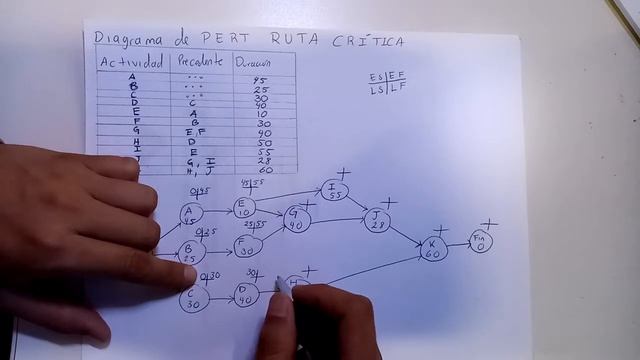 Diagrama de PERT RUTA CRÍTICA
Actividad Precedente Duración
A ... 45
B ... 25
C ... 30
D C 40
E A 10
F B 30
G E,F 40
H D 50
I E 55
J G, I 28
H, J 60
ES EF
LS LF
0 45
A
45
45 55
E
10
I
55
G
40
J
28
0 25
B
25
25 55
F
30
K
60
Fin
0
0 30
C
30
30
D
40
H